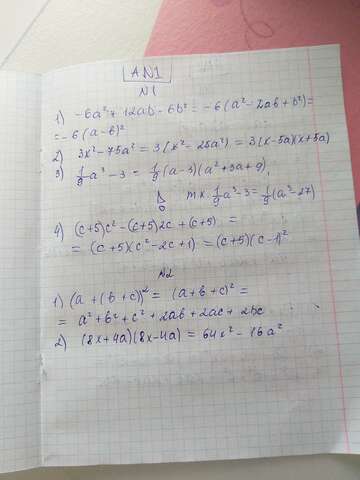 ДN1
N1
1) -6a²+12ab-6b² = -6(a²-2ab+b²)=
=-6(a-b)²
2) 3x²-75a² = 3(x²-25a²) = 3(x-5a)(x+5a)
3) 1/9 a³-3 = 1/9 (a-3)(a²+3a+9),
т.к. 1/9 a³-3 = 1/9 (a³-27)
4) (c+5)c²-(c+5)2c+(c+5) =
= (c+5)(c²-2c+1) = (c+5)(c-1)²
N2
1) (a+(b+c))² = (a+b+c)² =
= a²+b²+c²+2ab+2ac+2bc
2) (8x+4a)(8x-4a) = 64x²-16a²